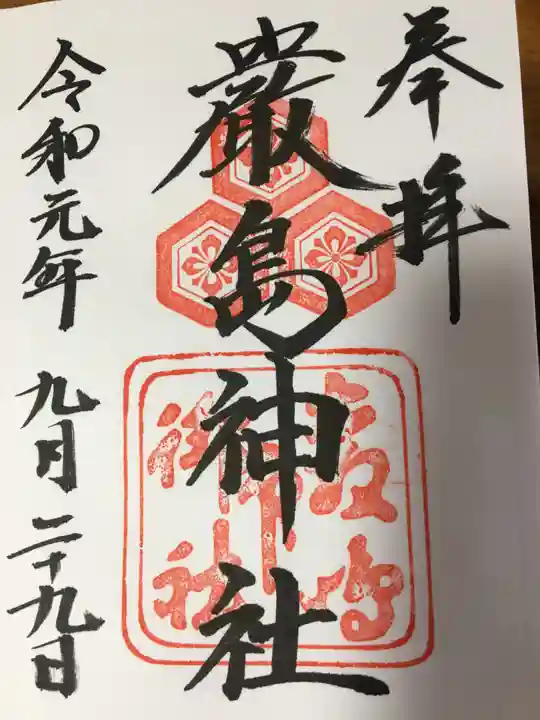 奉拝
厳島神社
令和元年 九月 二十九日